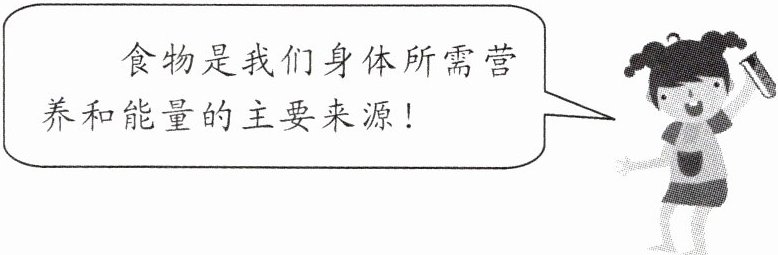 食物是我们身体所需营
养和能量的主要来源！